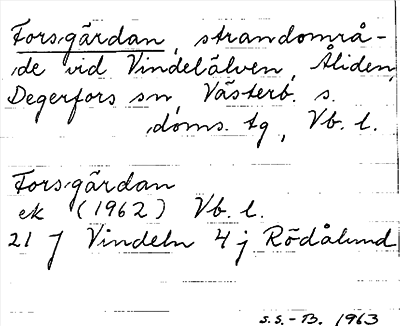 Forsgärdan, strandområ-
de vid Vindelälven, Åliden,
Degerfors sn, Västerb. s.
doms. tg, Vb. l.
Forsgärdan
ek (1962) Vb. l.
21 J Vindeln 4 j Rödålund
S.S.-B. 1963